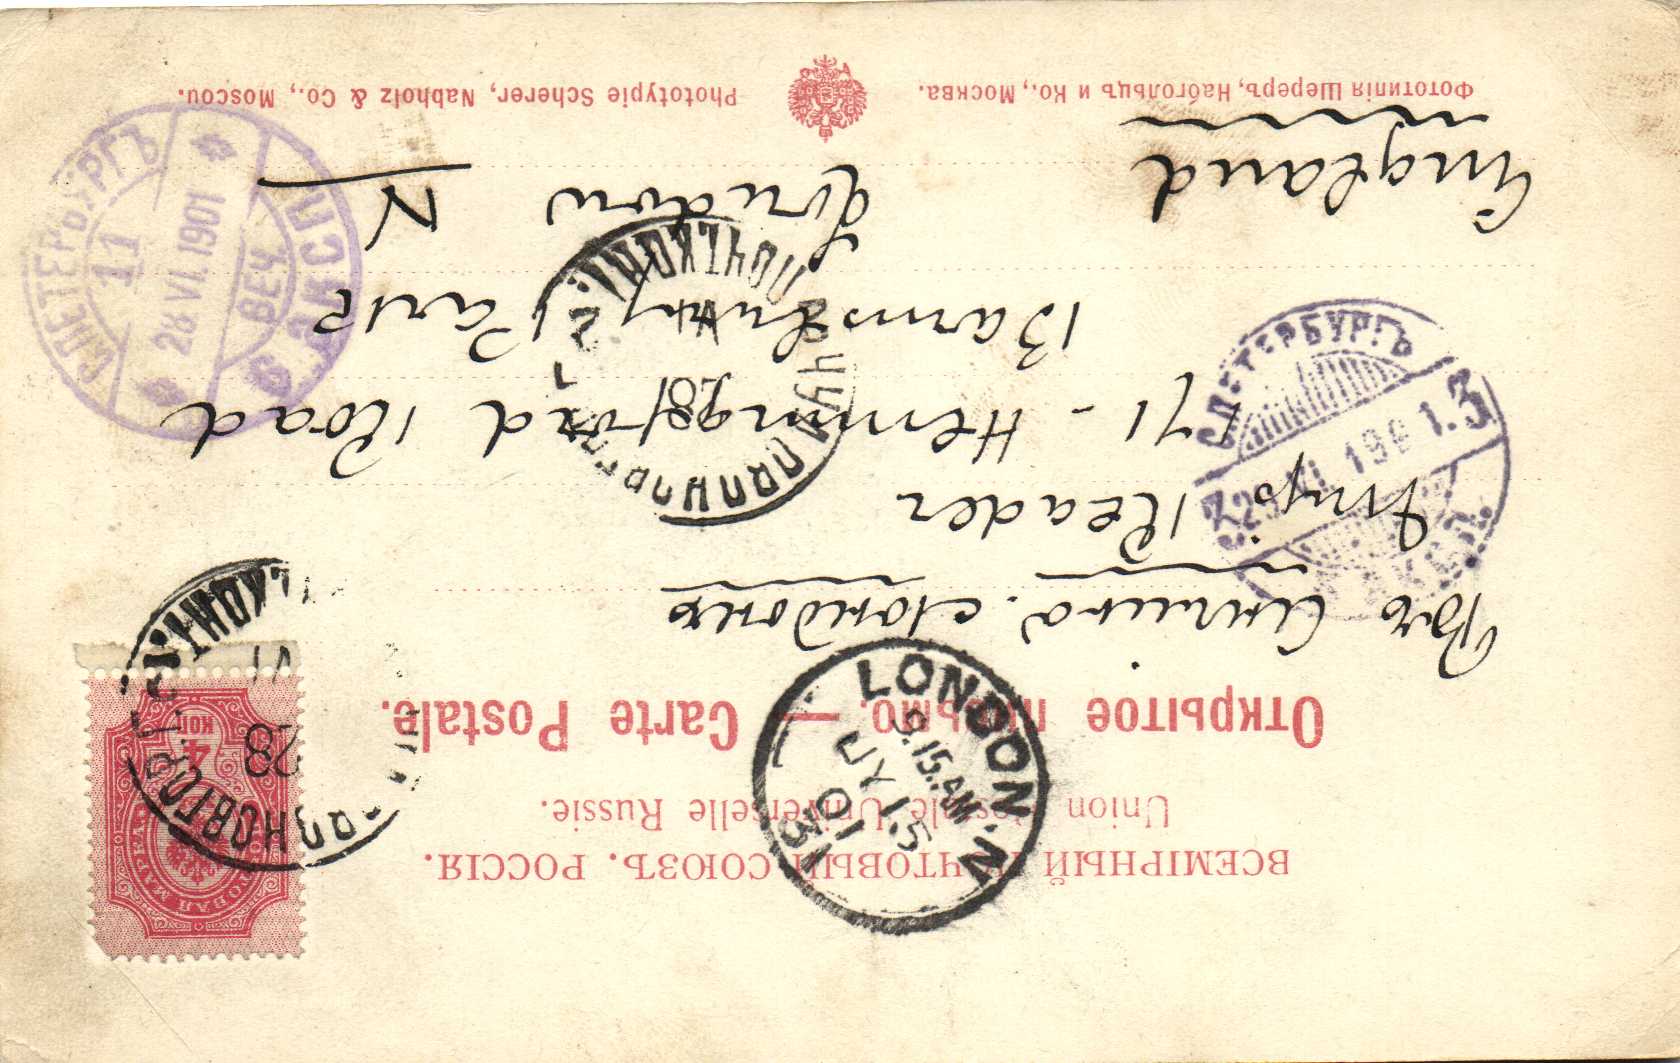 ВСЕМІРНЫЙ ПОЧТОВЫЙ СОЮЗЪ. РОССІЯ.
Union Postale Universelle Russie.
Открытое письмо. — Carte Postale.
Въ Лондонъ
Reader
171 - Hemingford Road
Barnsbury Park
London N
England
Фототипія Шереръ, Набгольцъ и Ко., Москва.
Phototypie Scherer, Nabholz & Co., Moscou.
4
КОП
28
VI
LONDON. N.
9.15.AM
JY 15
01
131
С.ПЕТЕРБУРГЪ
11
28 VI. 1901
ВЕЧ.
6 ЭКСП.
С.ПЕТЕРБУРГЪ
3